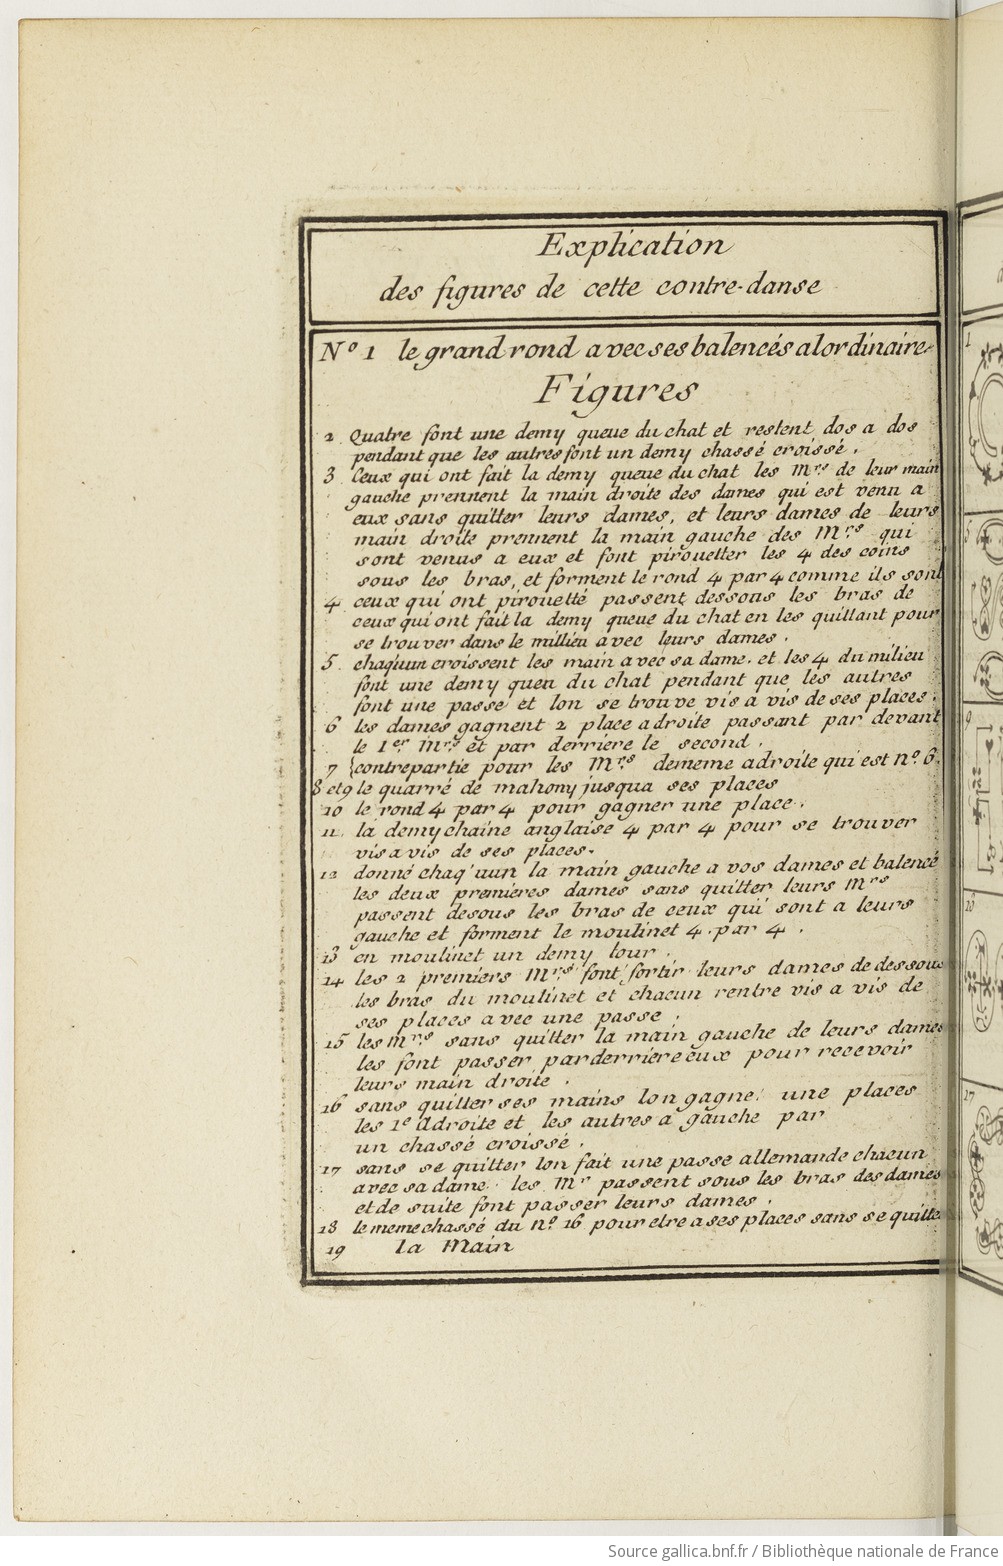 Explication
des figures de cette contre-danse
N° 1 le grand rond avec ses balencés alordinaire
Figures
2. Quatre font une demy queue du chat et restent dos a dos
pendant que les autres font un demy chassé croissé.
3 Ceux qui ont fait la demy queue du chat les Mrs. de leur main
gauche prennent la main droite des dames qui est venu a
eux sans quitter leurs dames, et leurs dames de leurs
main droite prennent la main gauche des Mrs. qui
sont venus a eux et font pirouetter les 4 des coins
sous les bras, et forment le rond 4 par 4 comme ils sont
4. ceux qui ont pirouetté passent dessous les bras de
ceux qui ont fait la demy queue du chat en les quittant pour
se trouver dans le millieu avec leurs dames.
5. chaqúun croissent les main avec sa dame. et les 4 du milieu
font une demy queu du chat pendant que les autres
font une passe et lon se trouve vis a vis de ses places.
6 les dames gagnent 2 place adroite passant par devant
le 1er Mrs. et par derriere le second.
7 contrepartie pour les Mrs. dememe adroite qui est n.° 6.
8 et 9 le quarré de mahony jusqua ses places
10 le rond 4 par 4 pour gagner une place.
11. la demy chaine anglaise 4 par 4 pour se trouver
vis a vis de ses places.
12 donné chaq'uun la main gauche a vos dames et balencé
les deux premieres dames sans quitter leurs Mrs
passent desous les bras de ceux qui sont a leurs
gauche et forment le moulinet 4. par 4.
13 en moulinet un demy tour.
14 les 2 premiers Mrs. font sortir leurs dames de dessous
les bras du moulinet et chacun rentre vis a vis de
ses places avec une passe.
15 les Mrs. sans quitter la main gauche de leurs dames
les font passer par derriere eux pour recevoir
leurs main droite.
16 sans quitter ses mains lon gagne une places
les 1e adroite et les autres a gauche par
un chassé croissé.
17 sans se quitter lon fait une passe allemande chacun
avec sa dame. les Mr passent sous les bras des dames
et de suite font passer leurs dames.
18 le meme chassé du n.° 16 pour etre a ses places sans se quitter
19 la Main
1
5
9
13
17
Source gallica.bnf.fr / Bibliothèque nationale de France